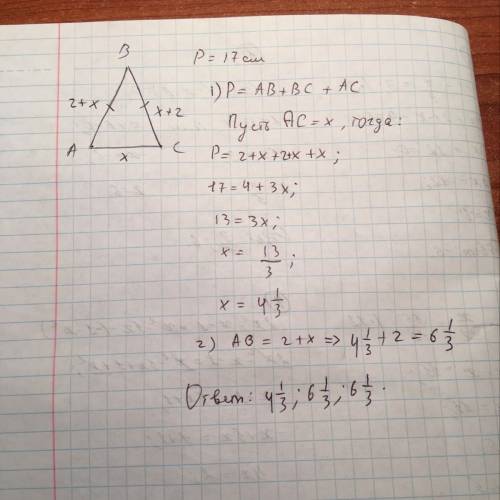 B
2+x
x+2
A
x
C
P = 17 см
1) P = AB + BC + AC
Пусть AC = x, тогда:
P = 2+x+2+x+x;
17 = 4 + 3x;
13 = 3x;
x = 13/3;
x = 4 1/3
2) AB = 2+x => 4 1/3 + 2 = 6 1/3
Ответ: 4 1/3; 6 1/3; 6 1/3.